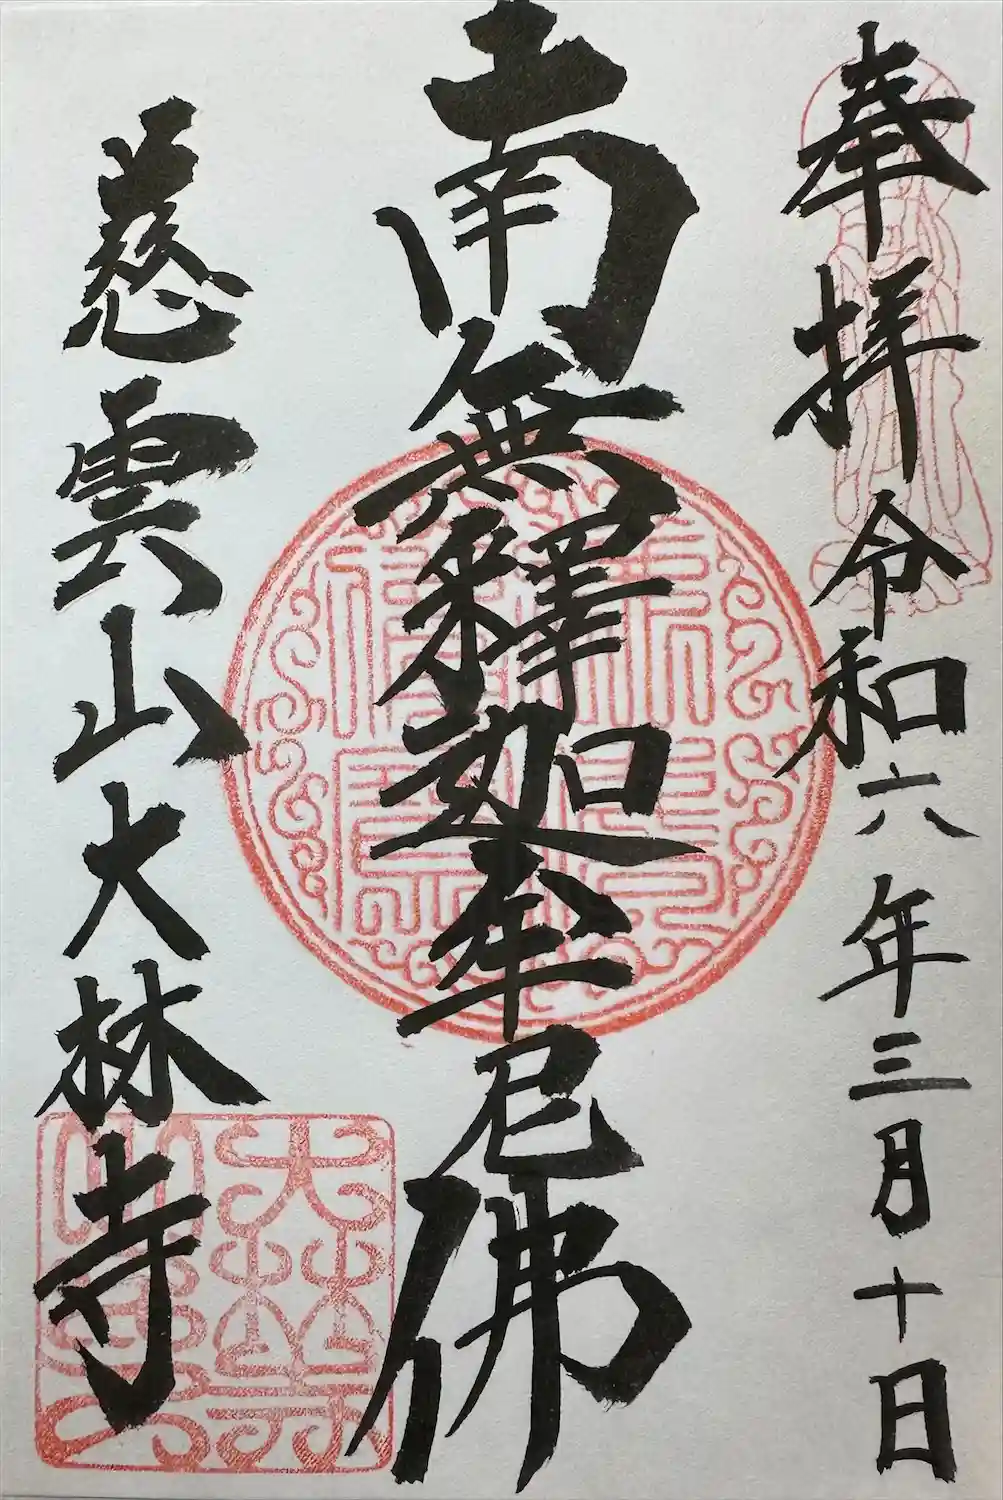 奉拝 令和六年三月十日
南無釋迦牟尼佛
慈雲山大林寺